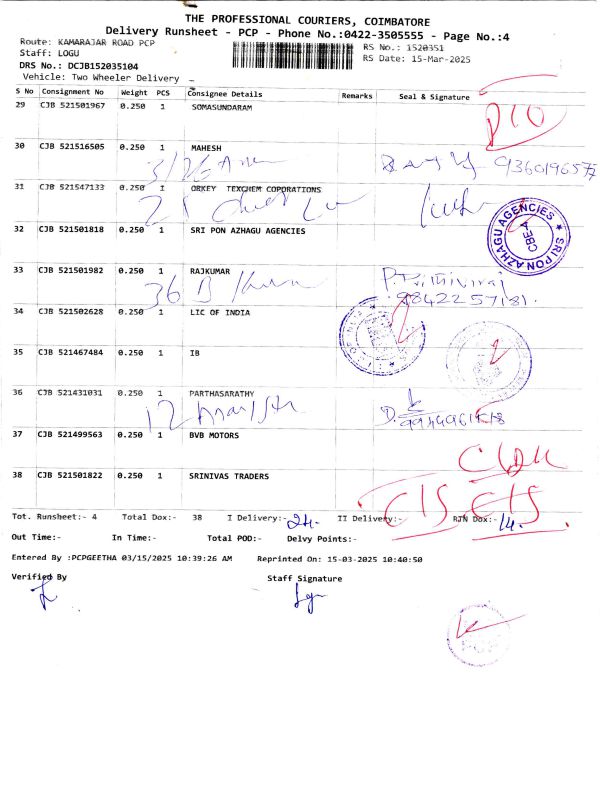 THE PROFESSIONAL COURIERS, COIMBATORE
Delivery Runsheet - PCP - Phone No.:0422-3505555 - Page No.:4
Route: KAMARAJAR ROAD PCP
RS No.: 1520351
Staff: LOGU
RS Date: 15-Mar-2025
DRS No.: DCJB152035104
Vehicle: Two Wheeler Delivery
S No Consignment No Weight PCS Consignee Details Remarks Seal & Signature
29 CJB 521501967 0.250 1 SOMASUNDARAM
30 CJB 521516505 0.250 1 MAHESH
31 CJB 521547133 0.250 1 ORKEY TEXCHEM COPORATIONS
32 CJB 521501818 0.250 1 SRI PON AZHAGU AGENCIES
SRI PON AZHAGU AGENCIES
CBE-4
33 CJB 521501982 0.250 1 RAJKUMAR
36
9842257181.
34 CJB 521502628 0.250 1 LIC OF INDIA
35 CJB 521467484 0.250 1 IB
36 CJB 521431031 0.250 1 PARTHASARATHY
12
37 CJB 521499563 0.250 1 BVB MOTORS
38 CJB 521501822 0.250 1 SRINIVAS TRADERS
Tot. Runsheet:- 4 Total Dox:- 38 I Delivery:- 24. II Delivery:- RTN Dox:- 14.
Out Time:- In Time:- Total POD:- Delvy Points:-
Entered By :PCPGEETHA 03/15/2025 10:39:26 AM Reprinted On: 15-03-2025 10:40:50
Verified By Staff Signature
PCP